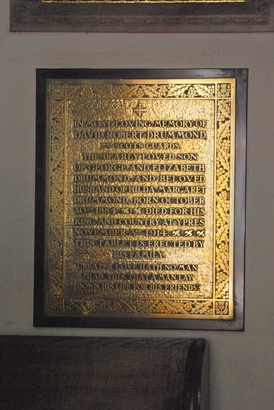 IN MOST LOVING MEMORY OF
DAVID ROBERT DRUMMOND
SCOTS GUARDS
THE DEARLY LOVED SON
OF GEORGE AND ELIZABETH
DRUMMOND AND BELOVED
HUSBAND OF HILDA MARGARET
DRUMMOND. BORN OCTOBER
1884. DIED FOR HIS
KING AND COUNTRY AT YPRES
NOVEMBER 1914.
THIS TABLET IS ERECTED BY
HIS FAMILY.
GREATER LOVE HATH NO MAN
THAN THIS THAT A MAN LAY
DOWN HIS LIFE FOR HIS FRIENDS